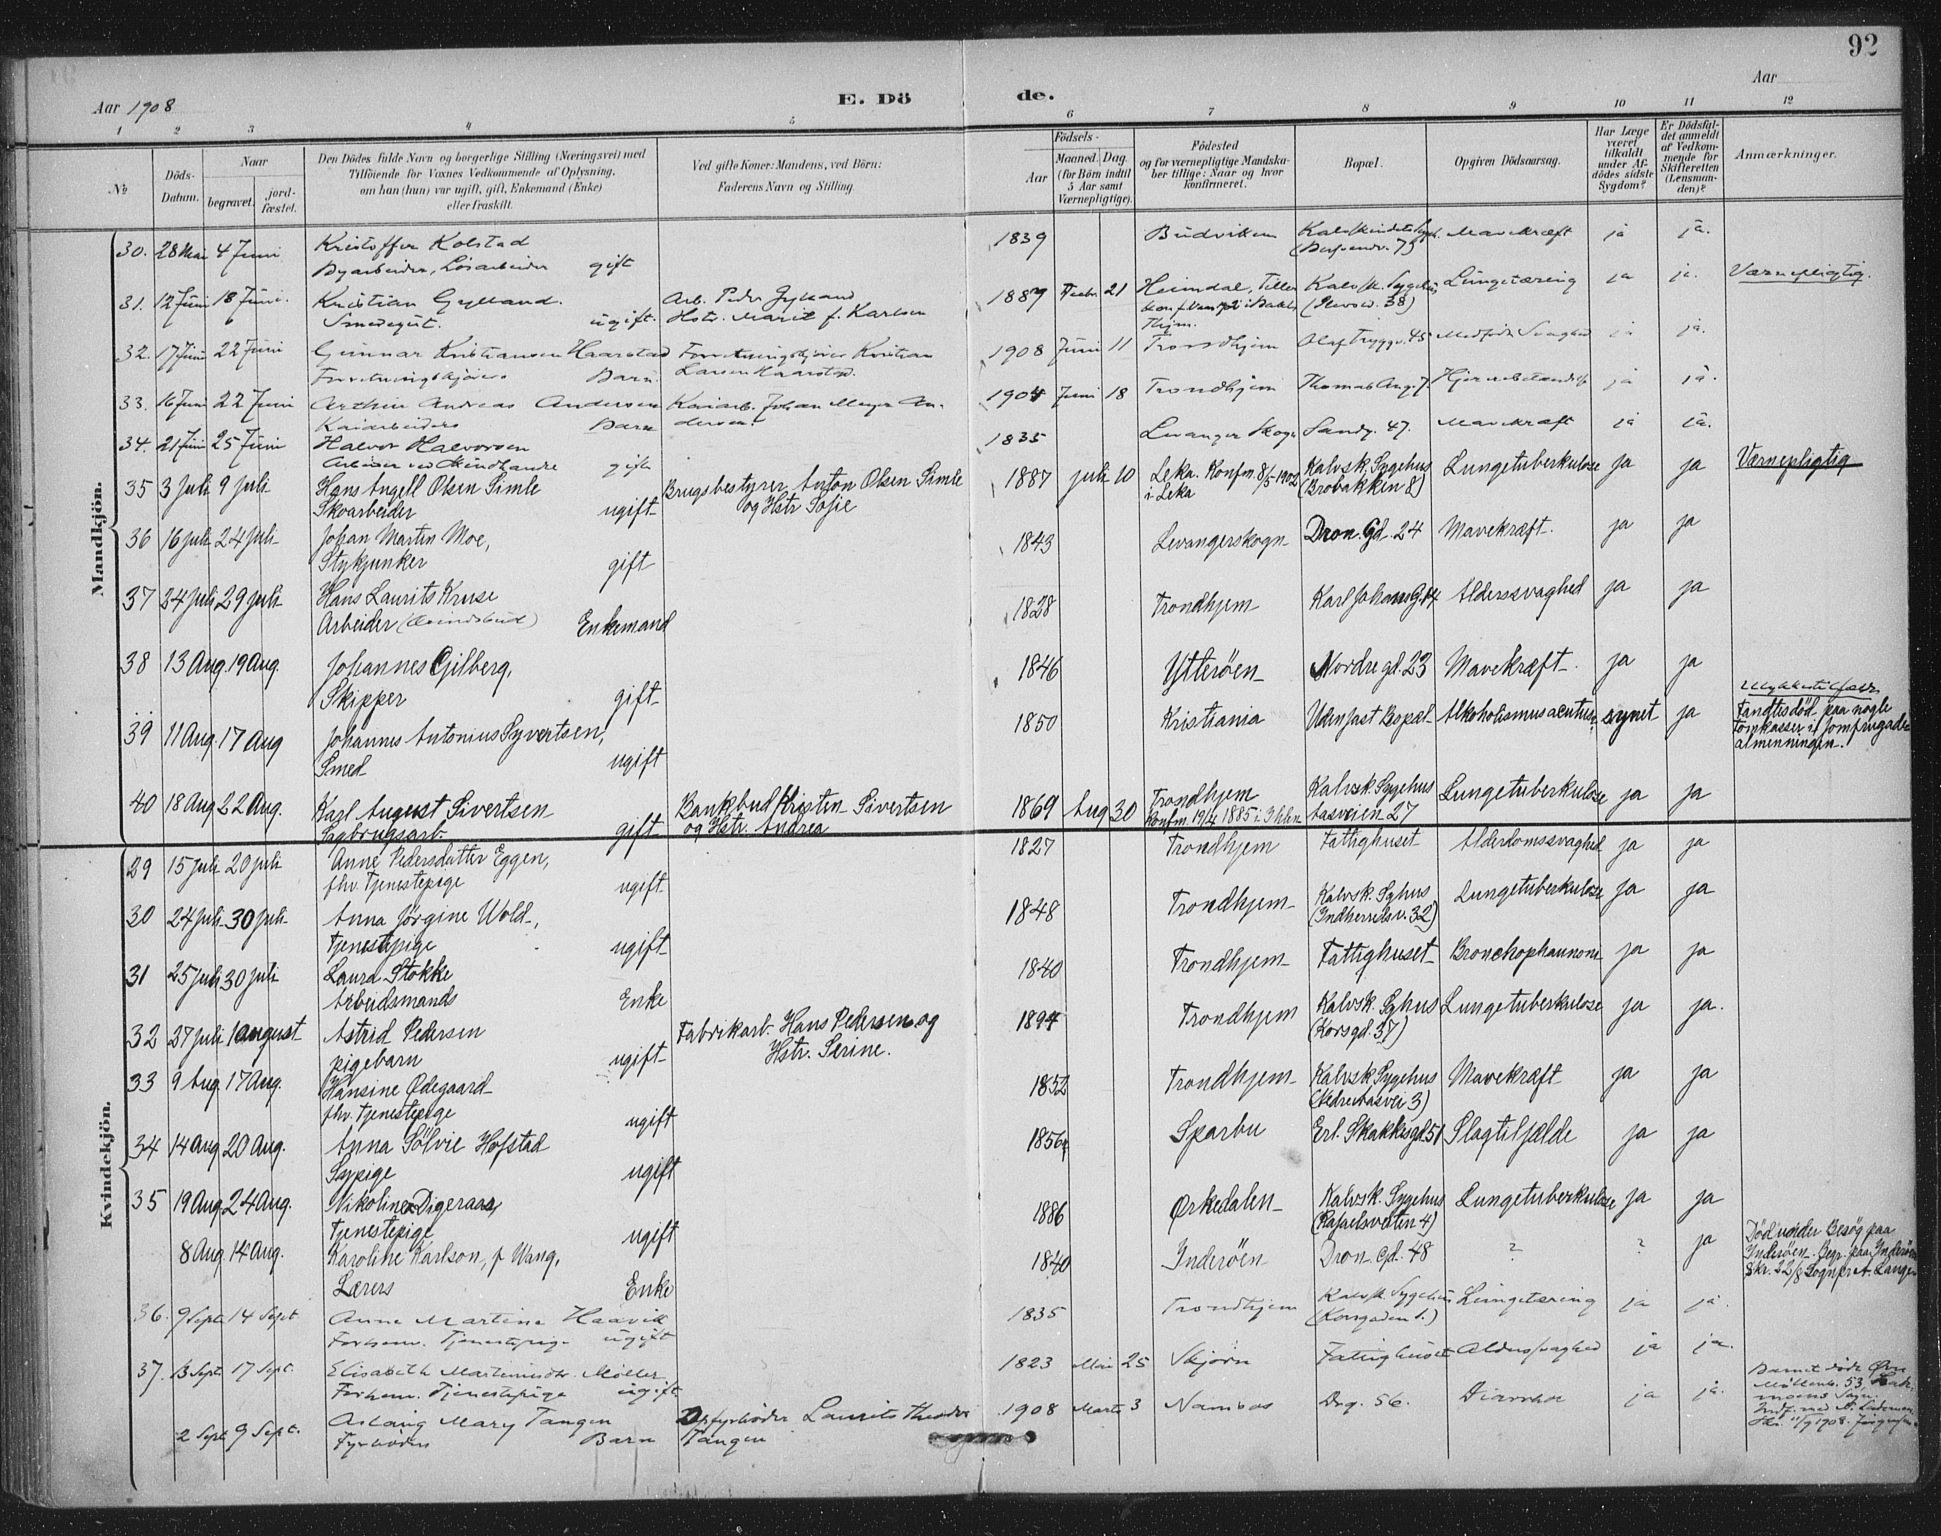 92
Aar 1908
E. Dö
de.
Aar
1 2 3 4 5 6 7 8 9 10 11 12
No
Döds-Datum.
Naar
begravet.
jord-fæstet.
Den Dödes fulde Navn og borgerlige Stilling (Næringsvei) med
Tilföiende for Voxnes Vedkommende af Oplysning,
om han (hun) var ugift, gift, Enkemand (Enke)
eller fraskilt.
Ved gifte Koner: Mandens, ved Börn:
Faderens Navn og Stilling.
Födsels-
Aar
Maaned. Dag.
(for Börn indtil
5 Aar samt
Værnepligtige).
Födested
og for værnepligtige Mandska-
ber tillige: Naar og hvor
konfirmeret.
Bopæl.
Opgiven Dödsaarsag.
Har Læge
været
tilkaldt
under Af-
dödes sidste
Sygdom?
Er Dödsfal-
det anmeldt
af Vedkom-
mende for
Skifteretten
(Lensman-
den)?
Anmærkninger.
Mandkjön.
30. 28 Mai 4 Juni Kristoffer Kolstad 1839 Budviken Mavekræft ja ja.
Byarbeider, Løsarbeider gift
31. 12 Juni 18 Juni. Kristian Gylland. Arb. Peder Gylland 1889 Febr. 21 Heimdal, Tiller Kalvsk. Sygehus Lungetæring ja ja. Værnepligtig.
Smedegut. ugift. Hstr. Marit f. Karlsen
Thjm.
32. 17 Juni 22 Juni Gunnar Kristiansen Haarstad Forretningsbjører Kristian 1908 Juni 11 Trondhjem Olaf Tryggv. 45 Medfødt Svaghed ja ja.
Barn. Larsen Haarstad.
33. 16 Juni 22 Juni Arthur Andreas Andersen Kaiarb. Johan Meyer An- 1904 Juni 18 Trondhjem Thomas Ang. 7 ja ja.
Kaiarbeiders Barn dersen.
34. 21 Juni 25 Juni Halvor Halvorsen 1835 Levanger Skogn Sandg. 47. Mavekræft ja ja.
gift
35 3 Juli 9 Juli Hans Angell Olsen Simle Brugsbestyrer Anton Olsen Simle 1887 juli 10 Leka. Konfm. 8/5 1902 Kalvsk. Sygehus Lungetuberkulose ja ja Værnepligtig
Skoarbeider ugift og Hstr Sofie i Leka (Brobakken 8)
36 16 Juli 24 Juli Johan Martin Moe, 1843 Levangerskogn Dron. Gd. 24 Mavekræft. ja ja
Stykjunker gift
37 24 Juli 29 Juli Hans Laurits Kruse 1828 Trondhjem Karl Johans G. 14 Alderssvaghed ja ja
Arbeider Enkemand
38 13 Aug. 19 Aug. Johannes Gilberg, 1846 Ytterøen Nordre gd. 23 Mavekræft. ja ja
Skipper gift
39 11 Aug. 17 Aug Johannes Antonius Syvertsen, 1850 Kristiania Uden fast Bopæl Alkoholismus acutus. synet ja Ulykkestilfælde
Smed ugift Fandtes død paa nogle
Tomkasser i Jomfrugade
almenningen.
40 18 Aug 22 Aug. Karl August Sivertsen Bankbud Kristen Sivertsen 1869 Aug 30 Trondhjem Kalvsk. Sygehus Lungetuberkulose ja ja
Sagbrugsarb. gift og Hstr. Andrea Konfm. 19/4 1885 i Ihlen Aasveien 27
Kvindekjön.
29 15 Juli 20 Juli Anne Pedersdatter Eggen, 1827 Trondhjem Fattighuset Alderdomssvaghed ja ja
fhv. Tjenestepige ugift
30 24 Juli 30 Juli Anna Jørgine Wold, 1848 Trondhjem Kalvsk. Syghus Lungetuberkulose ja ja
Tjenestepige ugift (Indherredsv. 32)
31 25 Juli 30 Juli Laura Stokke 1840 Trondhjem Fattighuset ja ja
Arbeidsmands Enke
32 27 Juli 1 august Astrid Pedersen Fabrikarb. Hans Pedersen og 1894 Trondhjem Kalvsk. Syghus Lungetuberkulose ja ja.
pigebarn ugift Hstr. Serine. (Korsgd. 37)
33 9 Aug. 17 Aug. Hansine Ødegaard 1852 Trondhjem Kalvsk Sygehus Mavekræft ja ja
fhv. Tjenestepige ugift
34 14 Aug 20 Aug. Anna Sølvie Hofstad 1856 Sparbu Erl. Skakkesgd. 51 Slagtilfælde ja ja
Sypige ugift
35 19 Aug 24 Aug. Nikoline Digeraas, 1886 Ørkedalen Kalvsk. Sygehus Lungetuberkulose ja ja
Tjenestepige ugift
8 Aug. 14 Aug. Karoline Karlson, f Wang, 1840 Inderøen Dron. Gd. 48 ? ? ja Død under Besøg paa
Lærers Enke Inderøen. Begr. paa Inderøen
36. 9 Sept. 14 Sept Anne Martine Haavik 1835 Trondhjem Kalvsk. Sygehus Lungetæring ja ja
Forhenv. Tjenestepige ugift (Korsgaden 1.)
37. 13 Sept 17 Sept. Elisabeth Martinusdtr. Møller 1823 Mai 25 Skjørn Fattighuset Alderssvaghed ja ja.
Forhenv. Tjenestepige ugift
2 Sept 9 Sept. Aslaug Mary Tangen Fyrbøder Laurits Theodor 1908 Marts 3 Namsos Drg. 56. Diarrhoe ja ja.
Fyrbøders Barn Tangen